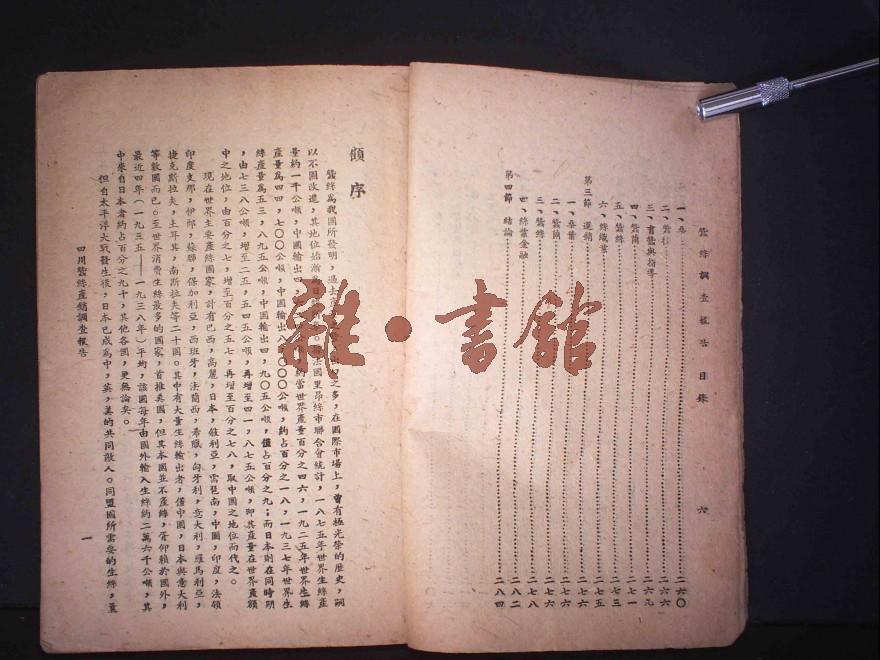 蠶絲調查報告　目錄　六
一、桑……二六〇
二、蠶種……二六六
三、育蠶與指導……二六九
四、蠶繭……二七一
五、蠶絲……二七三
六、絲織業……二七五
第三節　運銷……二七六
一、桑葉……二七六
二、蠶繭……二七六
三、蠶絲……二七八
四、絲業金融……二八二
第四節　結論……二八四
雜·書館
顧序
蠶絲為我國所發明，過去產　之多，在國際市場上，曾有極光榮的歷史，嗣
以不圖改進，其地位始漸為日　法國里昂絲市聯合會統計，一八七五年世界生絲產
量約一千公噸，中國輸出四　約當世界產量百分之四六，一九二五年世界生絲
產量為四四，七〇〇公噸，中國輸出八　〇〇〇公噸，約占百分之一八，一九三七年世界生
絲產量為五三，八九五公噸，中國輸出四，九〇五公噸，僅占百分之九；而日本則在同時期
，由七三八公噸，增至二五，五四五公噸，再增至四一，八七五公噸，即其產量在世界產額
中之地位，由百分之七，增至百分之五七，再增至百分之七八，取中國之地位而代之。
現在世界主要產絲國家，計有巴西，高麗，日本，敘利亞，雲琶南，中國，印度，法領
印度支那，伊郎，蘇聯，保加利亞，西班牙，法蘭西，希臘，匈牙利，意大利，羅馬利亞，
捷克斯拉夫，土耳其，南斯拉夫等二十國。其中有大量生絲輸出者，僅中國，日本與意大利
等數國而已。至世界消費生絲最多的國家，首推美國，但其本國並不產絲，胥仰賴於國外，
最近四年（一九三五——一九三八年）平均，該國每年由國外輸入生絲約二萬六千公噸，其
中來自日本者約占百分之九十，其他各國，更無論矣。
但自太平洋大戰發生後，日本已成為中，英，美的共同敵人。同盟國所需要的生絲，亟
四川蠶絲產銷調查報告　一